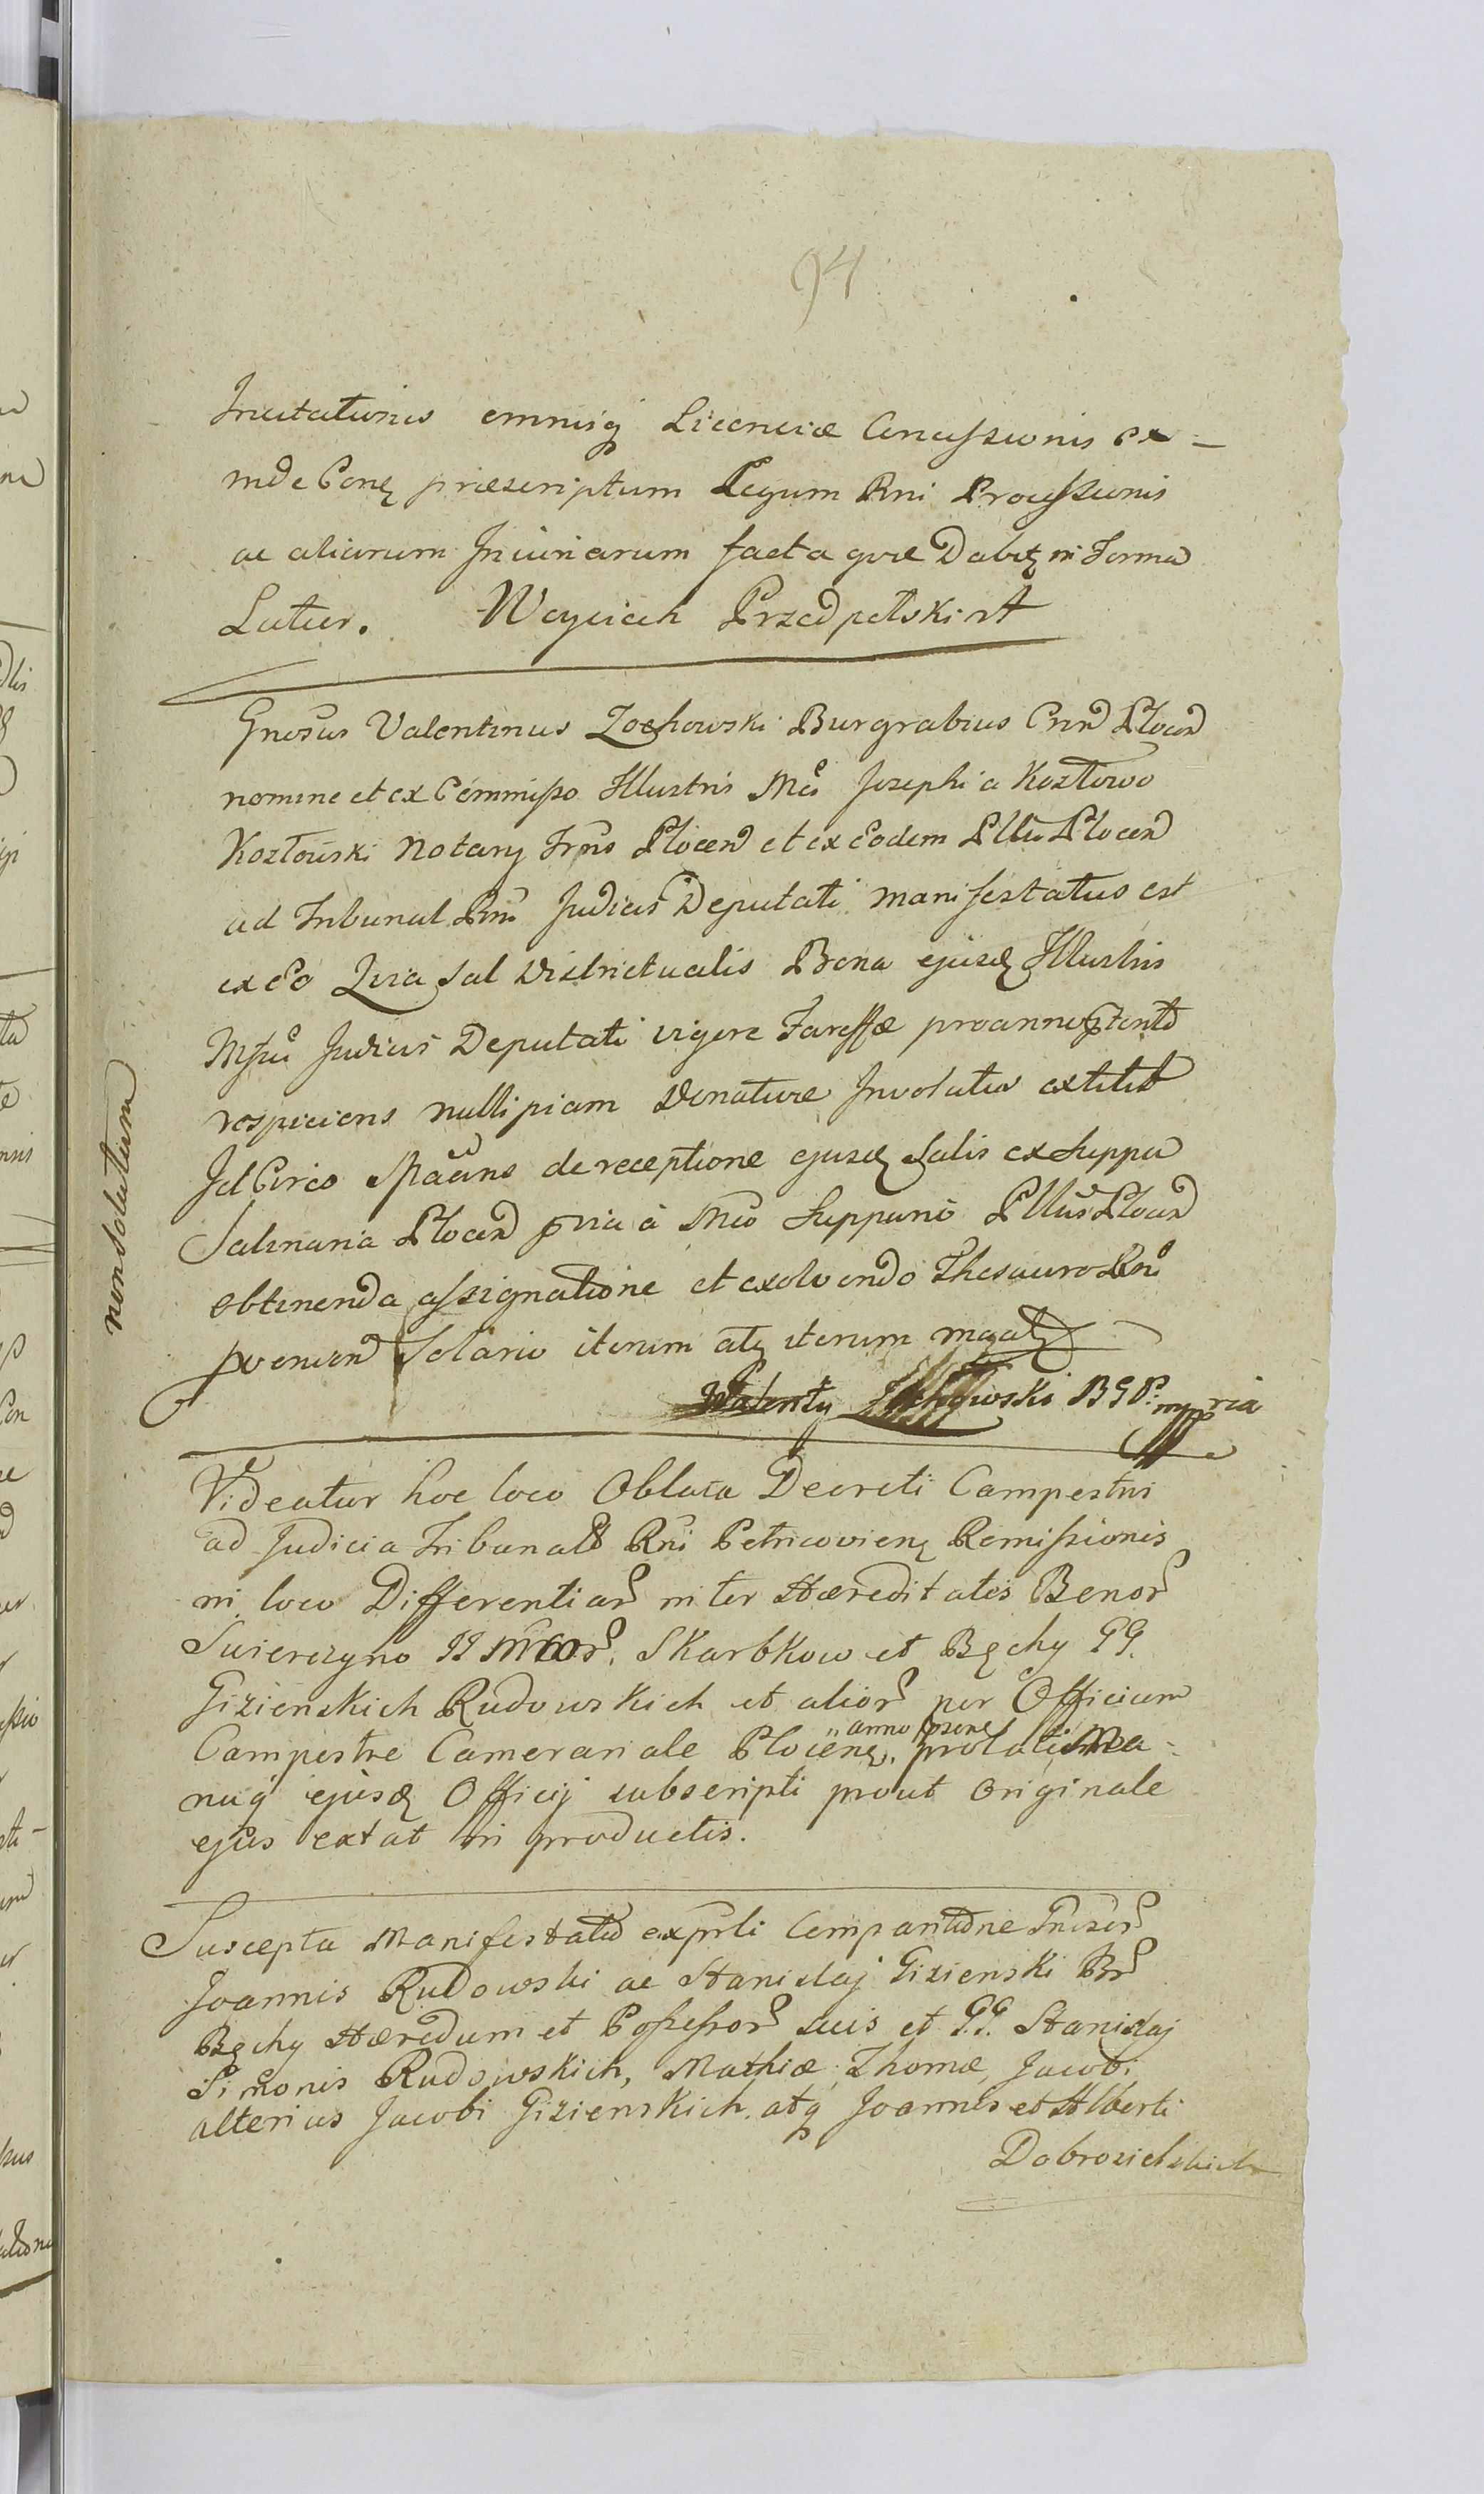 94
Incitationis omnisq Licenciæ Concessionis ex=
inde Conq præscriptum Legum Rni Processionis
ac aliarum Iniuriarum facta quæ Dabitq in Forma
Latius. Woyciech Przedpełski mp
Gnosus Valentinus Zochowski Burgrabius Crnn Plocen
nomine et ex Commisso Illustris Mci Josephi a Kozłowo
Kozłowski Notarij Trris Plocen et ex eodem Pllu Plocen
ad Tribunal Rni Judicis Deputati manifestatus est
ex eo Quia Sal Districtualis Bona ejusd Illustris
Mfici Judicis Deputati vigore Tareffæ pro anno
respiciens nullipiam Venaturæ Involatus extitit
Id Circo de receptione ejusd Salis ex Suppa
Salinaria Plocen pvia à Mco Supparió Pllus Plocen
obtinenda assignatione et exolvendo Thesauro Rni
proveniен Solario iterum atq iterum
Walenty Zochowski BGP: mppria
non solutum
Videatur hoc loco Oblata Decreti Campestris
ad Judicia Tribunals Rni Petricovienq Remissionis
in loco Differentiar inter Hæreditates Bonor
Swierczyno II Mcor. Skarbkow et Bęchy GG.
Gizienskich Rudowskich et alior per Officium
anno
Campestre Camerariale Plocenq. prolati Ma=
nuq ejusd Officij subscripti prout Originale
ejus extat in productis.
Suscepta Manifestatio ex prli Comparitione Gnisor
Joannis Rudowski ac Stanislaj Gizienski Br
Bęchy Hæredum et Possessor suis et G.G. Stanislaj
Simonis Rudowskich, Mathiæ, Thomæ, Jacobi
alterius Jacobi Gizienskich, atq Joannis et Alberti
Dobrosielskich